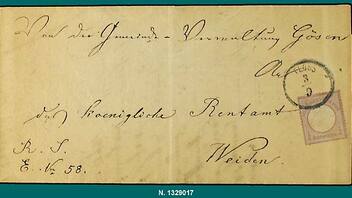 Von der Gemeinde-Verwaltung Gösen
An
das Koenigliche Rentamt
Weiden.
R. S.
E. No 58.
N. 1329017